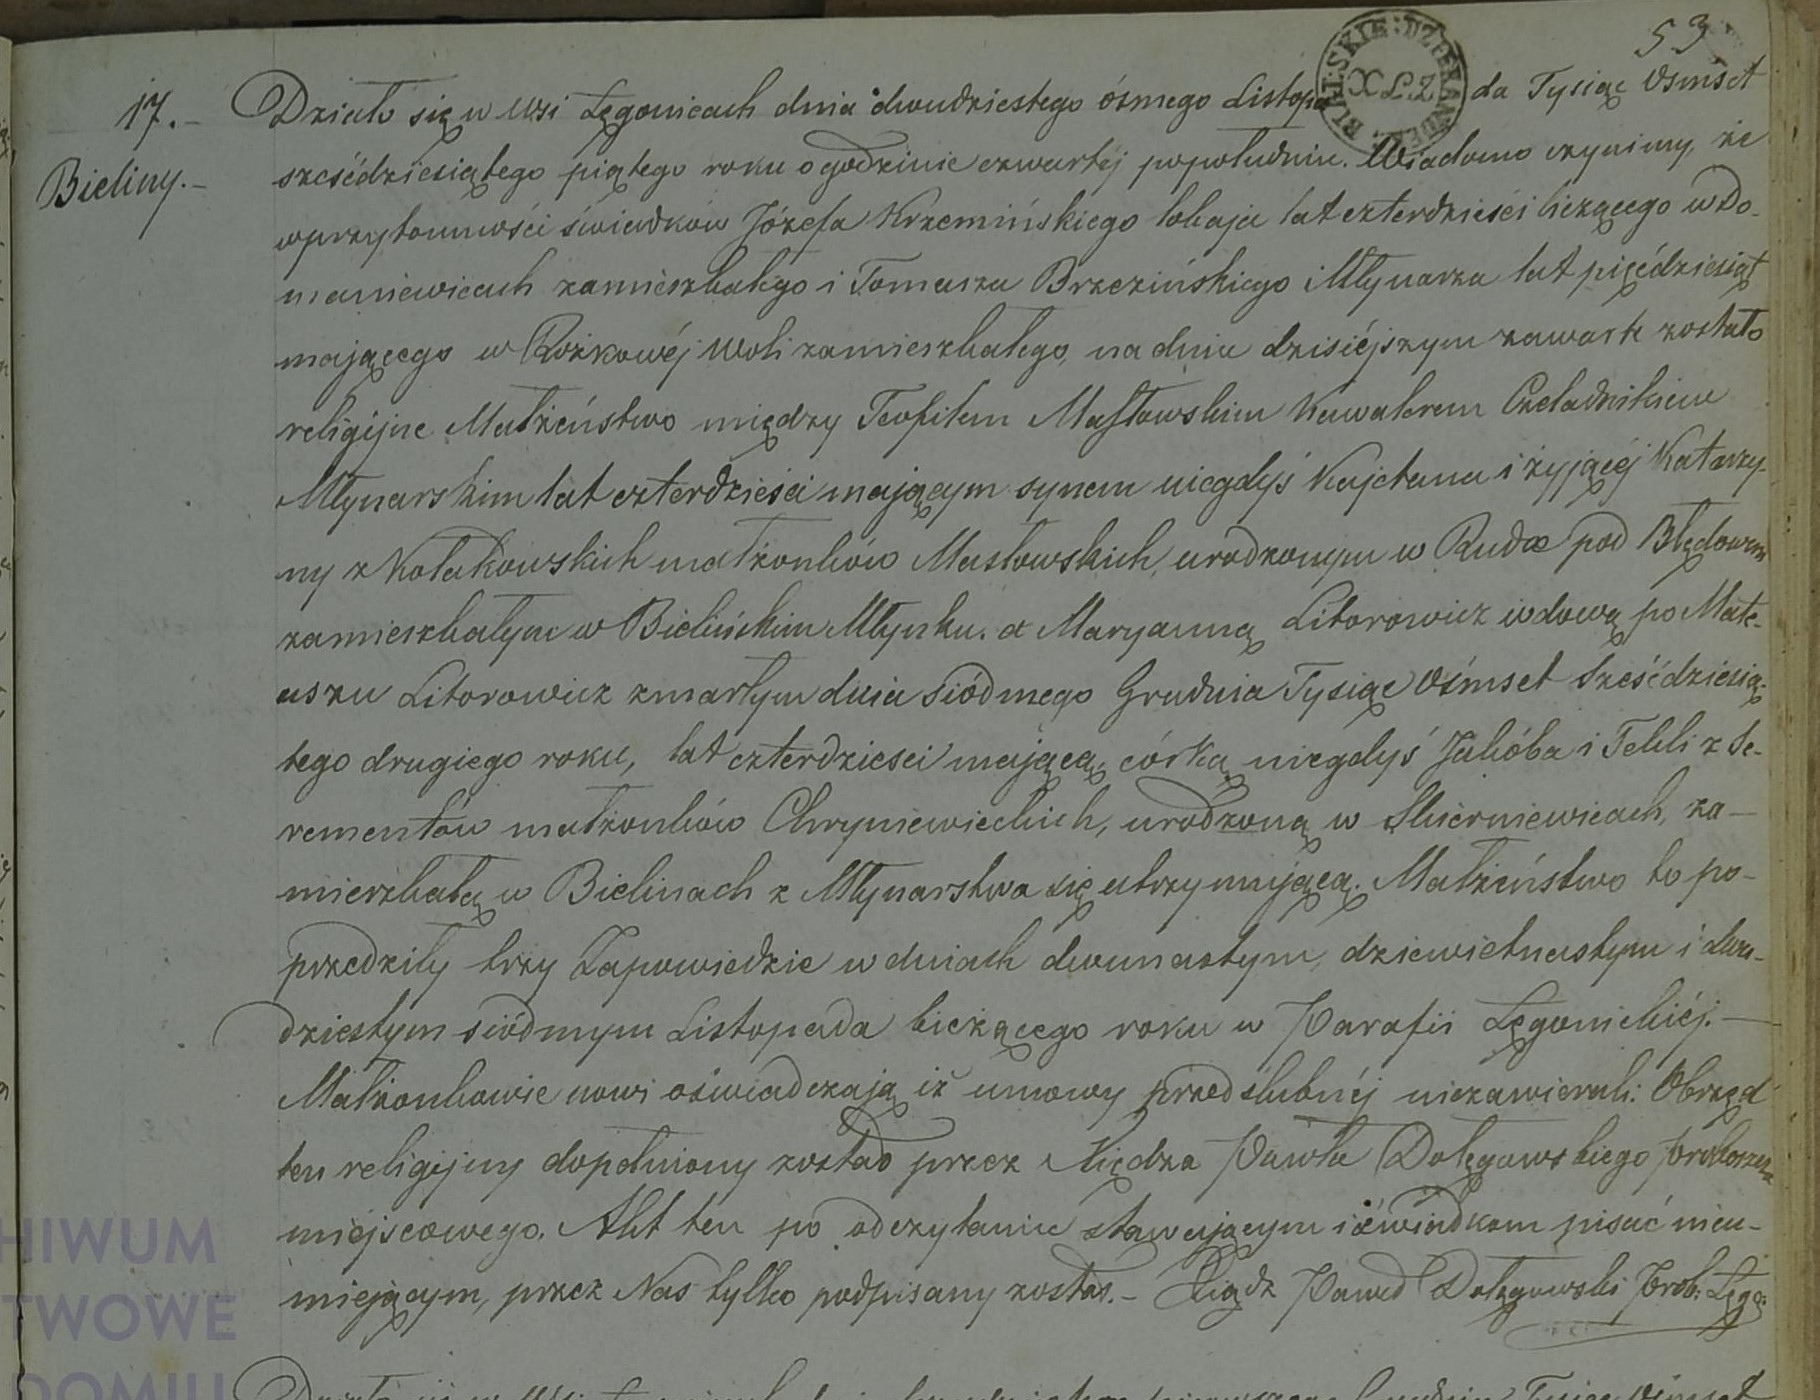 53
17.- Działo się w Wsi Łęgonicach dnia dwudziestego ósmego Listopa da Tysiąc Ośmset
Bieliny.- sześćdziesiątego piątego roku o godzinie czwartéj popołudniu. Wiadomo czynimy, że
wprzytomności świadków Józefa Krzemińskiego lokaja lat czterdzieści liczącego w Do-
maniewicach zamieszkałego i Tomasza Brzezińskiego Młynarza lat pięćdziesiąt
mającego w Rożkowéj Woli zamieszkałego, na dniu dzisiéjszym zawarte zostało
religijne Małżeństwo między Teofilem Masłowskim Kawalerem Czeladnikiem
Młynarskim lat czterdzieści mającym synem niegdyś Kajetana i żyjącéj Katarzy-
ny z Kołakowskich małżonków Masłowskich, urodzonym w Rudce pod Błędowem
zamieszkałym w Bielińskim Młynku. a Maryanną Litorowicz wdową po Mate-
uszu Litorowicz zmarłym dnia Siódmego Grudnia Tysiąc Ośmset Sześćdziesią-
tego drugiego roku, lat czterdzieści mającą, córką niegdyś Jakóba i Tekli z Se-
rementów małżonków Chryniewieckich, urodzoną w Skierniewicach, za-
mieszkałą w Bielinach z Młynarstwa się utrzymującą. Małżeństwo to po-
przedziły trzy Zapowiedzie w dniach dwunastym, dziewietnastym i dwu-
dziestym siódmym Listopada bieżącego roku w Parafii Łęgonickiéj.-
Małżonkowie nowi oświadczają iż umowy przedślubnéj niezawierali. Obrzęd
ten religijny dopełniony został przez Księdza Pawła Dołęgowskiego proboszcza
miejscowego. Akt ten po odczytaniu stawającym i świadkom pisać nieu-
miejącym, przez Nas tylko podpisany został.- Xiądz Paweł Dołęgowski Prob: Łęgo:
HIWUM
TWOWE
DOMIU